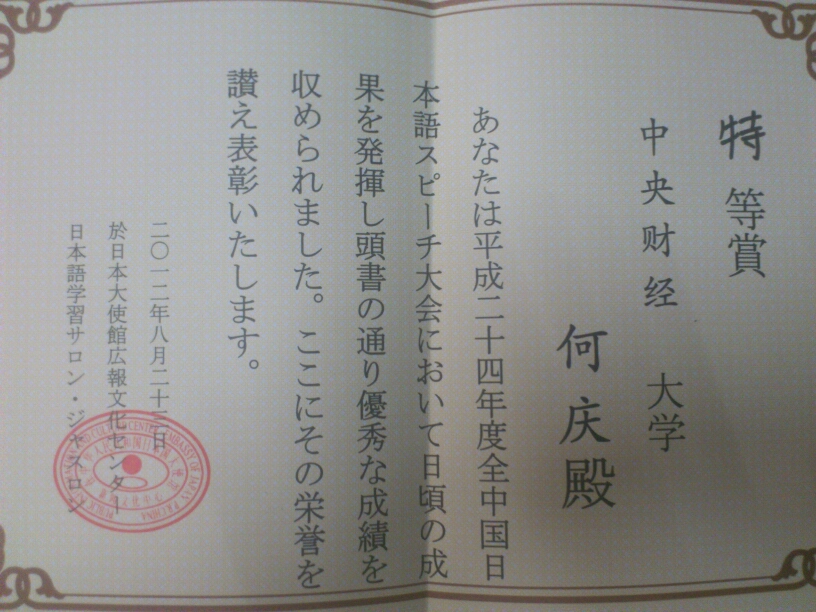 特等賞
中央财经 大学
何庆殿
あなたは平成二十四年度全中国日
本語スピーチ大会において日頃の成
果を発揮し頭書の通り優秀な成績を
収めました。ここにその栄誉を
讃え表彰いたします。
二〇一二年八月二十三日
於日本大使館広報文化センター
日本語学習サロン・ジャスロン
EMBASSY OF JAPAN